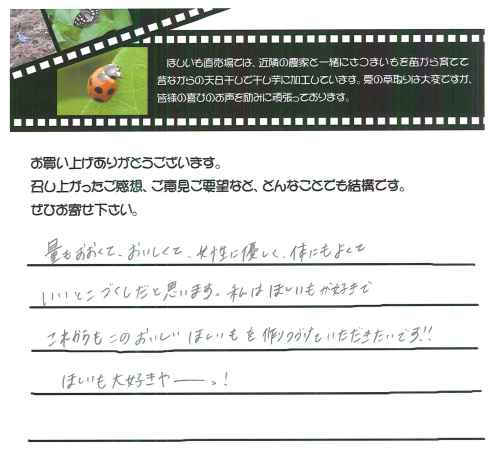 ほしいも直売場では、近隣の農家と一緒にさつまいもを苗から育てて
昔ながらの天日干しで干し芋に加工しています。夏の草取りは大変ですが、
皆様の喜びのお声を励みに頑張っております。
お買い上げありがとうございます。
召し上がったご感想、ご意見ご要望など、どんなことでも結構です。
ぜひお寄せ下さい。
量もおおくて、おいしくて、女性に優しく、体にもよくて
いいとこづくしだと思います。私はほしいもが好きで
これからもこのおいしいほしいもを作りつづけていただきたいです!!
ほしいも大好きやーっ!